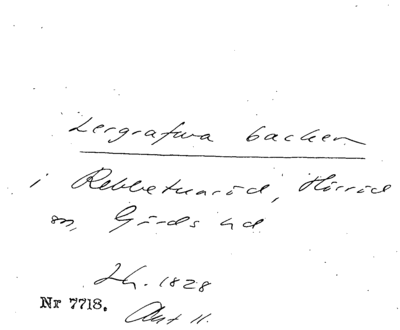 Lergrafwa backen
i Rebbetuaröd, Hörröd
sn, Gärds hd
Lh. 1828
Nr 7718. Akt 11.